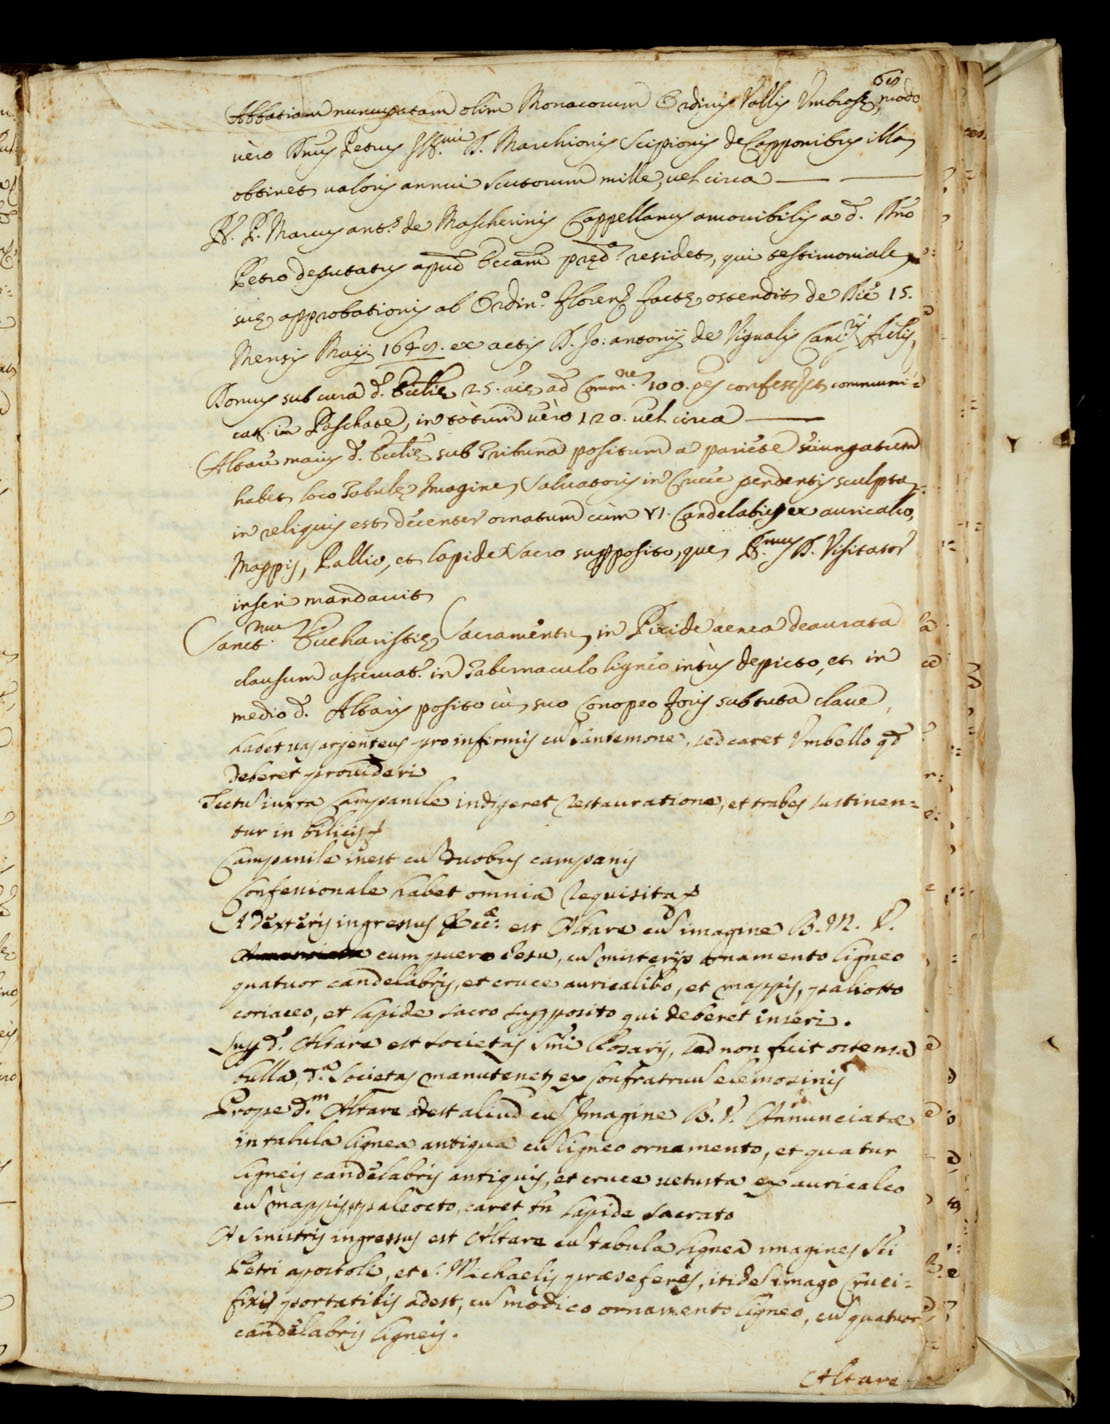 Abbatiam nuncupatam olim Monacorum Ordinis Vallis Umbrosę, modo
vero Dnus Petrus Ill.mi D. Marchionis Scipionis de Capponibus illa
obtinet, valoris annui scutorum mille, vel circa
R. P. Marcus ant.s de Mascherinis Cappellanus amovibilis a d. Dno
Petro deputatus apud Eccam pręd.a residet, qui testimoniale
suę approbationis ab Ordin.o Floren. factę ostendit de Die 15.
Mensis Maij 1649. ex actis D. Jo: antonij de Vignalis Canc.rij
Domus sub cura d. Ecclię 25. aię ad Comm.ne 100. communi=
cat. in Paschate, in totum vero 120. vel circa
Altare maius d. Ecclię sub Tribuna positum a pariete seiungatum
habet, loco Tabulę Imagine, Salvatoris in Cruce pendentis sculpta,
in reliquis est decenter ornatum cum VI. Candelabris ex auricalco,
Mappis, Pallio, et lapide sacro supposito, que R.mus D. Visitator
inseri mandavit
Sanct.mum Eucharistię Sacramentu, in Pixide aenea deaurata
clausum asservat. in Tabernaculo ligneo intus depicto, et in
medio d. Altaris posito cu suo Conopeo foris sub tuta clave,
habet vas argenteus pro infirmis cu santemone, sed caret Umbello qd
deberet provideri
Tectus iuxta Campanile indigeret restauratione, et trabes sustinen=
tur in bilicis
Campanile inest cu Duobus campanis
Confessionale habet omnia requisita
A dexteris ingressus Ecc.e est Altare cu imagine B. M. V.
cum puero Iesu, cu misterijs ornamento ligneo
quatuor candelabris, et cruce auricalibo, et mappis, paliotto
coriaceo, et lapide sacro supposito qui deberet inseri.
Sup d. Altare est societas Smi Rosarij, sed non fuit ostensa
bulla, d.a societas manutenet, ex Confratruu elemosinis
Prope d.m Altare adest aliud cu Imagine B. V. Annunciatae
in tabula lignea antiqua cu ligneo ornamento, et quatur
ligneis candelabris antiquis, et cruce vetusta ex auricalco
cu mappis, paleocto, caret tn lapide sacrato
A sinistris ingressus est Altare cu tabula lignea imagines Sti
Petri apostoli, et S. Michaelis praeseferes, itide imago Cruci=
fixi portatilis adest, cu modico ornamento ligneo, cu quatuor
candelabris ligneis.
Altare